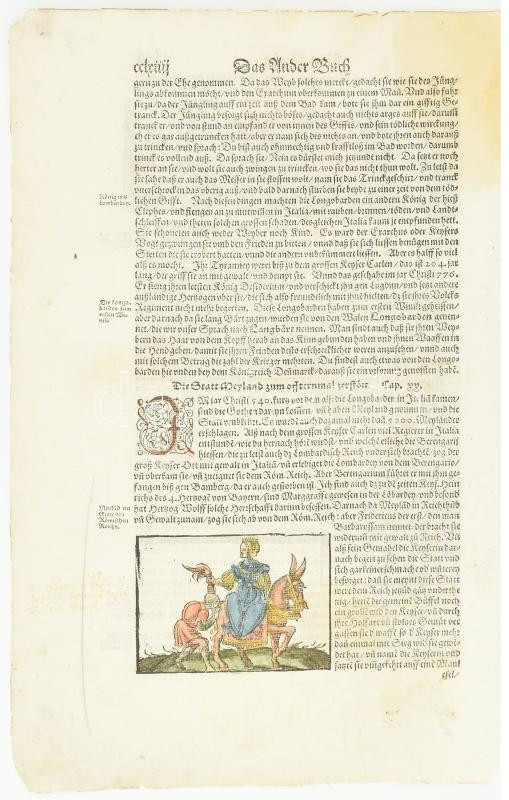 cclxiiij Das Ander Buch
gern zu der Ehe genommen. Da das Weyb solches merckt/gedacht sie wie sie des Jüng-
lings abkommen möcht/vnd den Exarchum vberkommen zu einem Mañ. Vnd also fuhr
sie zu/da der Jüngling auff ein zeit auß dem Bad kam/bote sie jhm dar ein gifftig Ge-
tranck. Der Jüngling besorgt sich nichts böses/gedacht auch nichts arges auff sie/darumb
tranck er/vnd von stund an empfand er von innen des Giffts/vnd sein tödliche wirckung/
eh er es gar außgetruncken hatt/aber er nam sich des nichts an/vnd bote jhren auch darauß
zu trincken/vnd sprach: Du bist auch ohnmechtig vnd krafftloß im Bad worden/darumb
trinck es vollend auß. Da sprach sie/Nein es dürstet mich jetzundt nicht. Da setzt er noch
herter an sie/vnd wolt sie auch zwingen zu trincken/wo sie das nicht thun wolt. Zu letst da
sie sahe daß er auch das Messer in sie stossen wolt/nam sie das Trinckgeschirr/vnd tranck
vnerschrocken das vberig auß/vnd bald darnach sturben sie beyde zu einer zeit von dem töd-
lichen Gifft. Nach diesen dingen machten die Longobarden ein andern König der hieß
Clephes/vnd fiengen an zu mutwillen in Italia/mit rauben/brennen/tödten/vnd Landt-
schleiffen/vnd theten solchen grossen schaden/desgleichen Italia kaum je empfunden hett.
Sie schoneten auch weder Weyber noch Kind. Es ward der Exarchus oder Keysers
Vogt gezwungen sie vmb den Frieden zu bitten/vnnd daß sie sich liessen benügen mit den
Stetten die sie erobert hatten/vnnd die andern vnbekümmert liessen. Aber es halff so viel
als es mocht. Jhr Tyranney weret biß zu dem grossen Keyser Carlen/das ist 204. jar
lang/der griff sie an mit gewalt/vnd dempt sie. Vnnd das geschahe im jar Christi 776.
Er fieng jhren letsten König Desiderium/vnd verschickt jhn gen Lugdun/vnd setzt andere
außländige Hertzogen vber sie/die sich also freundtlich mit jhnd hielten/dz sie jhrs Volcks
Regiment nicht mehr begerten. Diese Longobarden haben zum ersten Winili geheissen/
aber darnach da sie lang Bärt zugen/wurden sie von den Walen Longobarden genen-
net/die wir vnser Sprach nach Langbärt nennen. Man findt auch daß sie jhren Wey-
bern das Haar von dem Kopff herab an das Kinn gebunden haben vnd jhnen Waaffen in
die Hend geben/damit sie jhren Feinden desto erschrecklicher weren anzusehen/vnnd auch
mit solchem Betrug die zahl der Krieger mehrten. Du findest auch etwas von den Longo-
barden hie vnden bey dem Königreich Denmarck/darauß sie ein vrsprung genommen habẽ.
König mit
Lombarden.
Die Longo-
barden zum
ersten Wi-
nili.
Die Statt Meyland zum offternmal zerstört. Cap. xv.
IM jar Christi 540. kurtz vor dem als die Longobarden in Italiã kamen/
sind die Gothen daryn kom̃en/vñ haben Meyland gewunnen/vnd die
Statt vmbkehrt. Es wurdẽ auch dazumal nicht dañ 3000. Meyländer
erschlagen. Als nach dem grossen Keyser Carlen viel Regierer in Italia
entstundẽ/wie du hernach hörẽ wirdst/vnd welche etliche die Berengarij
hiessen/die zu letst auch dz Lombardisch Reich vnder sich bracht/zog der
groß Keyser Ott mit gewalt in Italiã/vñ erlediget die Lombardey von dem Berengario/
vñ vberkam sie/vñ zueignet sie dem Röm. Reich. Aber Berengarium führet er mit jhm ge-
fangen biß gen Bamberg/da er auch gestorben ist.
Meyland im
Röm. den
Römischen
Reich.
Barbarossam nennet/der bracht sie
widerumb mit gewalt zů Reich. Vñ
als sein Gemahel die Keyserin dar-
nach begert zu sehen die Statt vnd
besorget: daß sie meynt diese Statt
were dem Reich jetzũd gãtz vnderthe-
nig/hett die gemein Büffel noch
ein groll wid den Keyser/vñ durch
jhre Hoffart vñ stoltzes Gemüt ver
gassen sie
daß einmal mit Sieg wid sie gewi-
det hat/vñ namẽ die Keyserin vnd
satztẽ sie vmgekehrt auff eine Maul
esel/